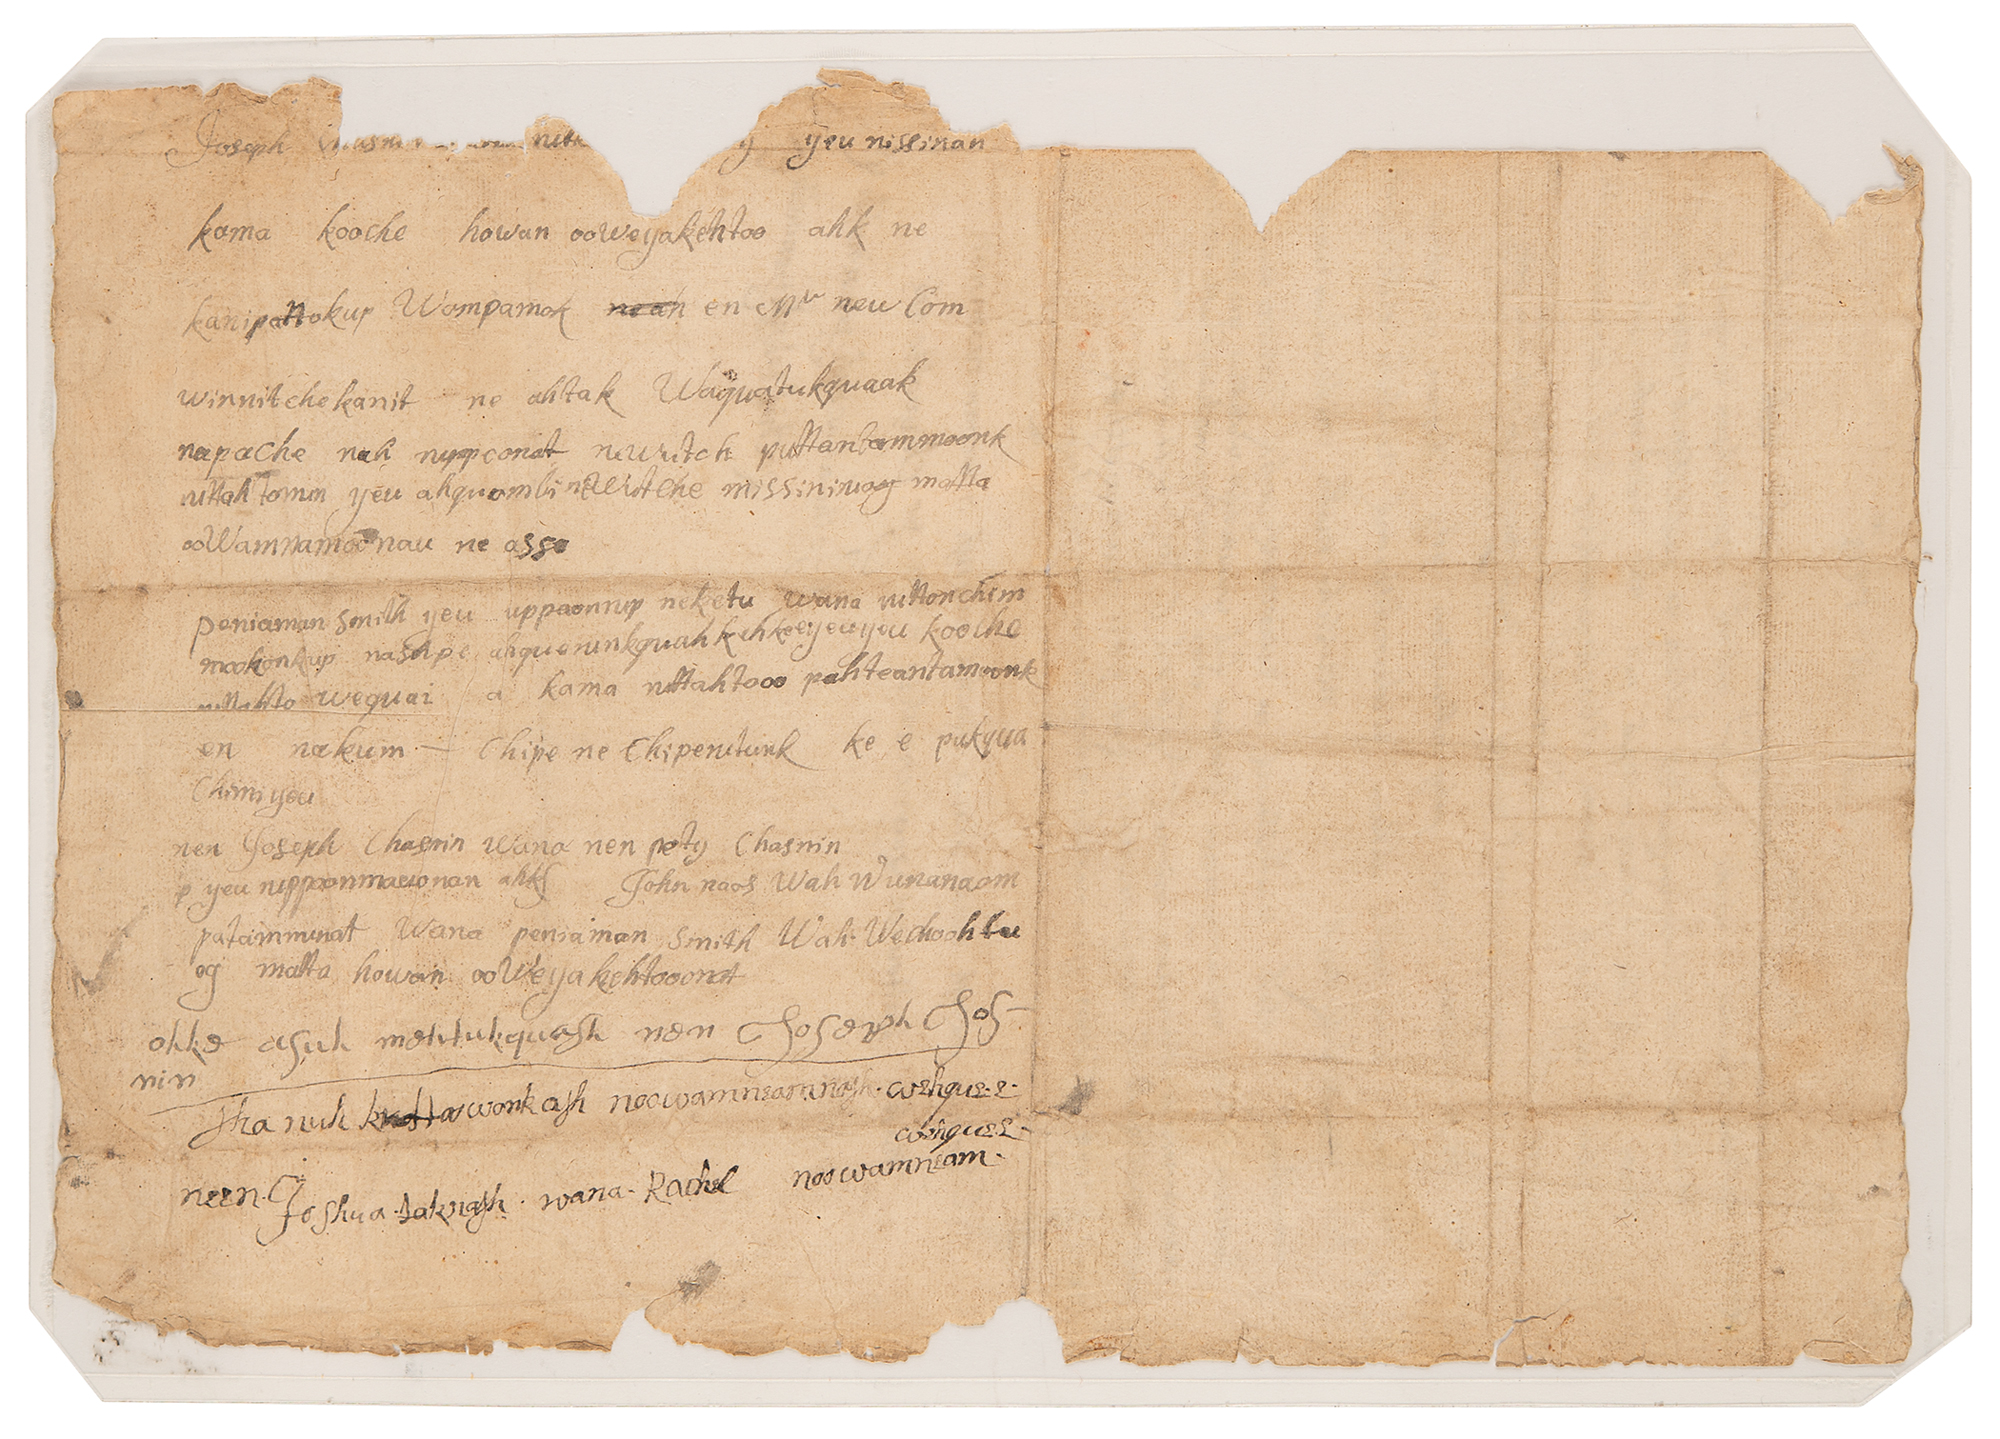 Joseph yeu nissinan
kama kooche howan ꝏweyakehtoo ahk ne
kanipattokup Wompamok en Mr new Com
winnitchekanit ne ahtak Waquatukquaak
napache nah nuppeonat neuritch puttantammoonk
nuttahtomun yeu ahquombi missininuog matta
ꝏWamnamoonau ne asso
peniaman Smith yeu uppoonnup neketu wana nuttonchim
mookonkup nashpe kooche
nuttahto wequai a kama nuttahtooo pahteantamoonk
en nakum — Chipe ne Chipenutunk ke e pukqua
Chimiyeu
nen Joseph Chasnin wana nen pety Chasnin
p yeu nuppoonmaeonan ahk John naos Wah Wunanaom
patammunat Wana peniaman Smith Wah Wechoohtu
og matta howan ꝏWeyakehtooonat
ohke asuh mehtukquash nen Joseph Jos-
nin
noowamneamunash. wehque-e-
wehquee-
neen. Joshua. taknash. wana. Rachel noowamneam.